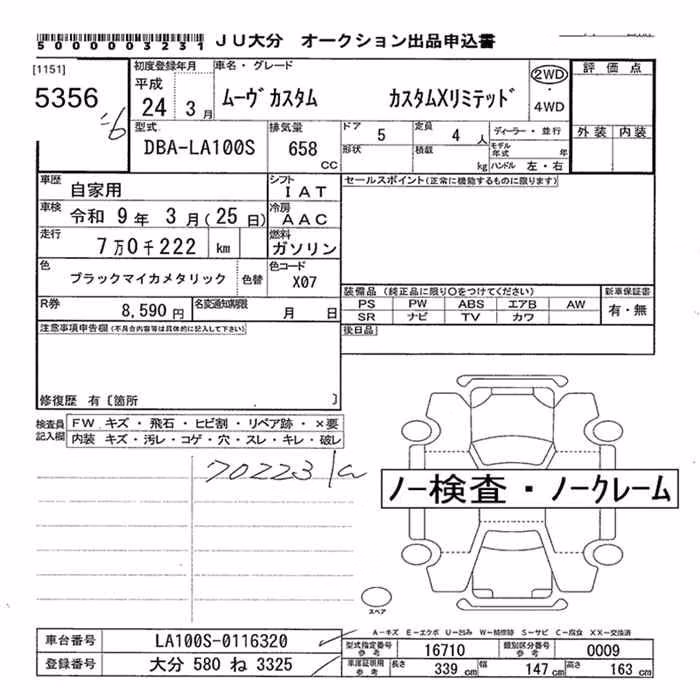 5000003231 JU大分 オークション出品申込書
[1151]
5356
初度登録年月
平成
24 3月
車名・グレード
ムーヴカスタム カスタムXリミテッド
2WD
・
4WD
評価点
外装 内装
型式
DBA-LA100S
排気量
658
CC
ドア 5
定員 4 人
ディーラー・並行
形状
積載 kg
モデル年式 年
ハンドル 左・右
車歴 自家用
シフト IAT
車検 令和 9年 3月(25日)
冷房 AAC
走行 7万0千222 km
燃料 ガソリン
色 ブラックマイカメタリック
色替
色コード X07
R券 8,590円
名変通知期限 月 日
セールスポイント(正常に機能するものに限ります)
装備品(純正品に限り○をつけてください)
新車保証書
PS PW ABS エアB AW
SR ナビ TV カワ
有・無
後日品
注意事項申告欄(不具合内容等は具体的に記入して下さい)
修復歴 有〔箇所 〕
検査員記入欄
FW キズ・飛石・ヒビ割・リペア跡・×要
内装 キズ・汚レ・コゲ・穴・スレ・キレ・破レ
70223
ノー検査・ノークレーム
スペア
A-キズ E-エクボ U-凹み W-補修跡 S-サビ C-腐食 XX-交換済
車台番号 LA100S-0116320
登録番号 大分 580 ね 3325
型式指定番号 参考 16710
類別区分番号 参考 0009
車庫証明用 参考 長さ 339 cm 幅 147 cm 高さ 163 cm